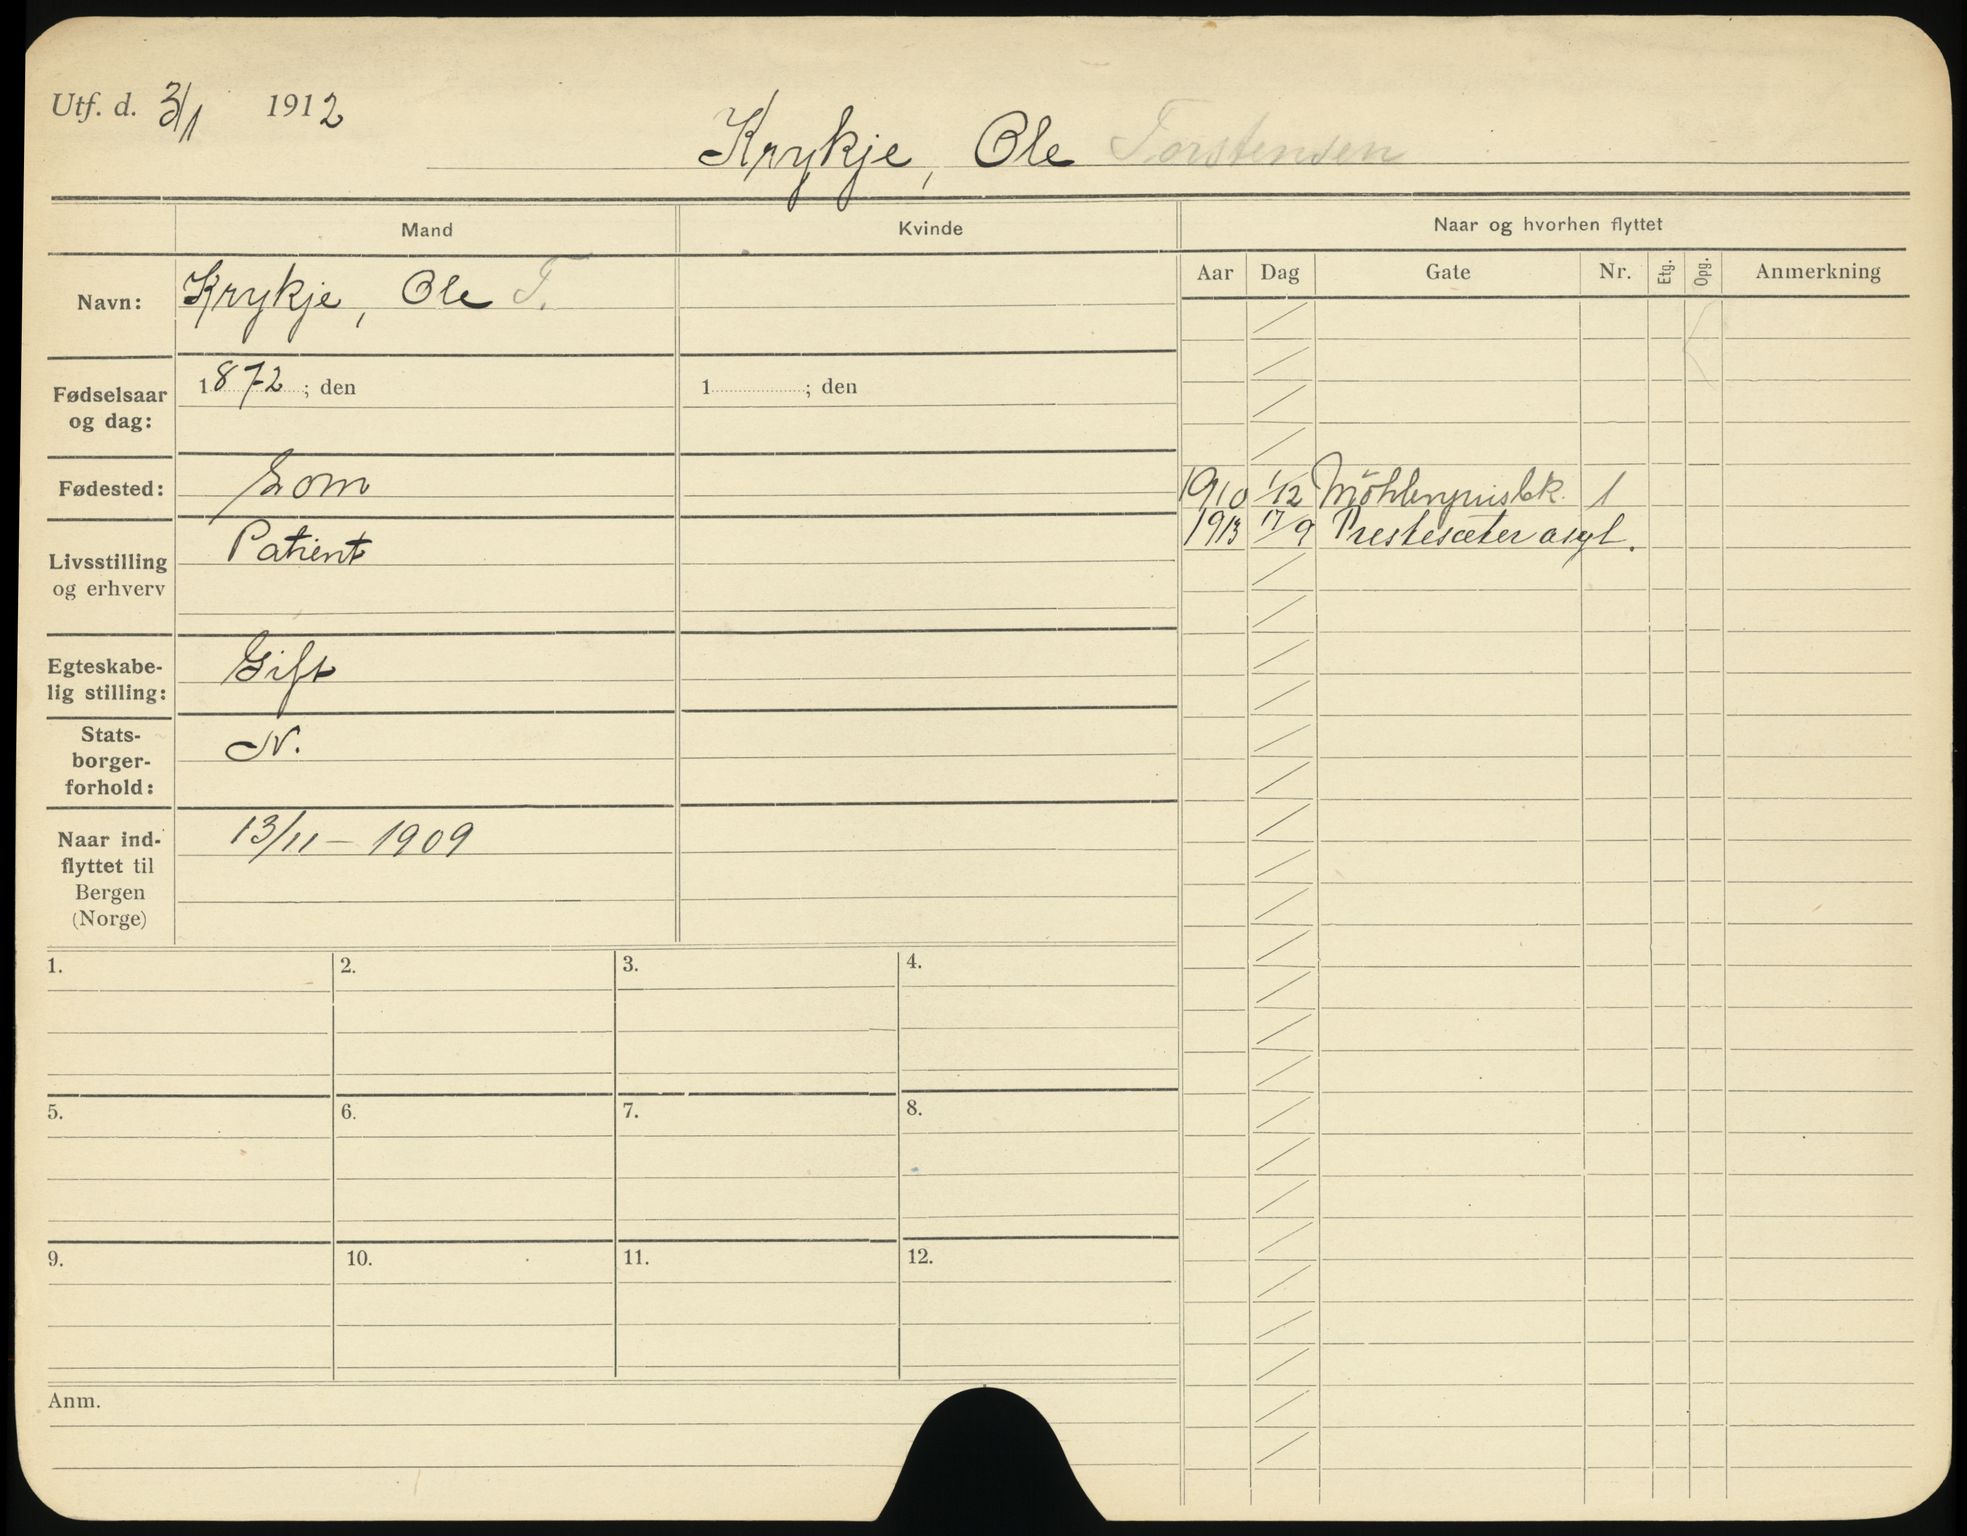 Utf. d. 3/1 1912
Krykje, Ole Torstensen
Mand
Kvinde
Navn: Krykje, Ole T.
Fødselsaar og dag: 1872 ; den
1 ; den
Fødested: Lom
Livsstilling og erhverv Patient
Egteskabe-
lig stilling: Gift
Stats-
borger-
forhold: N.
Naar ind-
flyttet til
Bergen
(Norge) 13/11 – 1909
1. 2. 3. 4.
5. 6. 7. 8.
9. 10. 11. 12.
Anm.
Naar og hvorhen flyttet
Aar Dag Gate Nr. Etg. Opg. Anmerkning
1910 1/12 Möhlenprisbk. 1
1913 17/9 Prestesæter asyl.